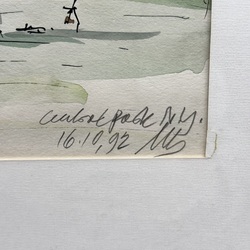 Central Park N.Y.
16.10.92